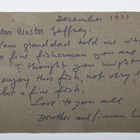 December 1977
Dear Master Jeffrey,
Your grandad told me what
a fine fisherman you are
I thought you might
enjoy this fish, not very
but a fine fish.
Love to you all